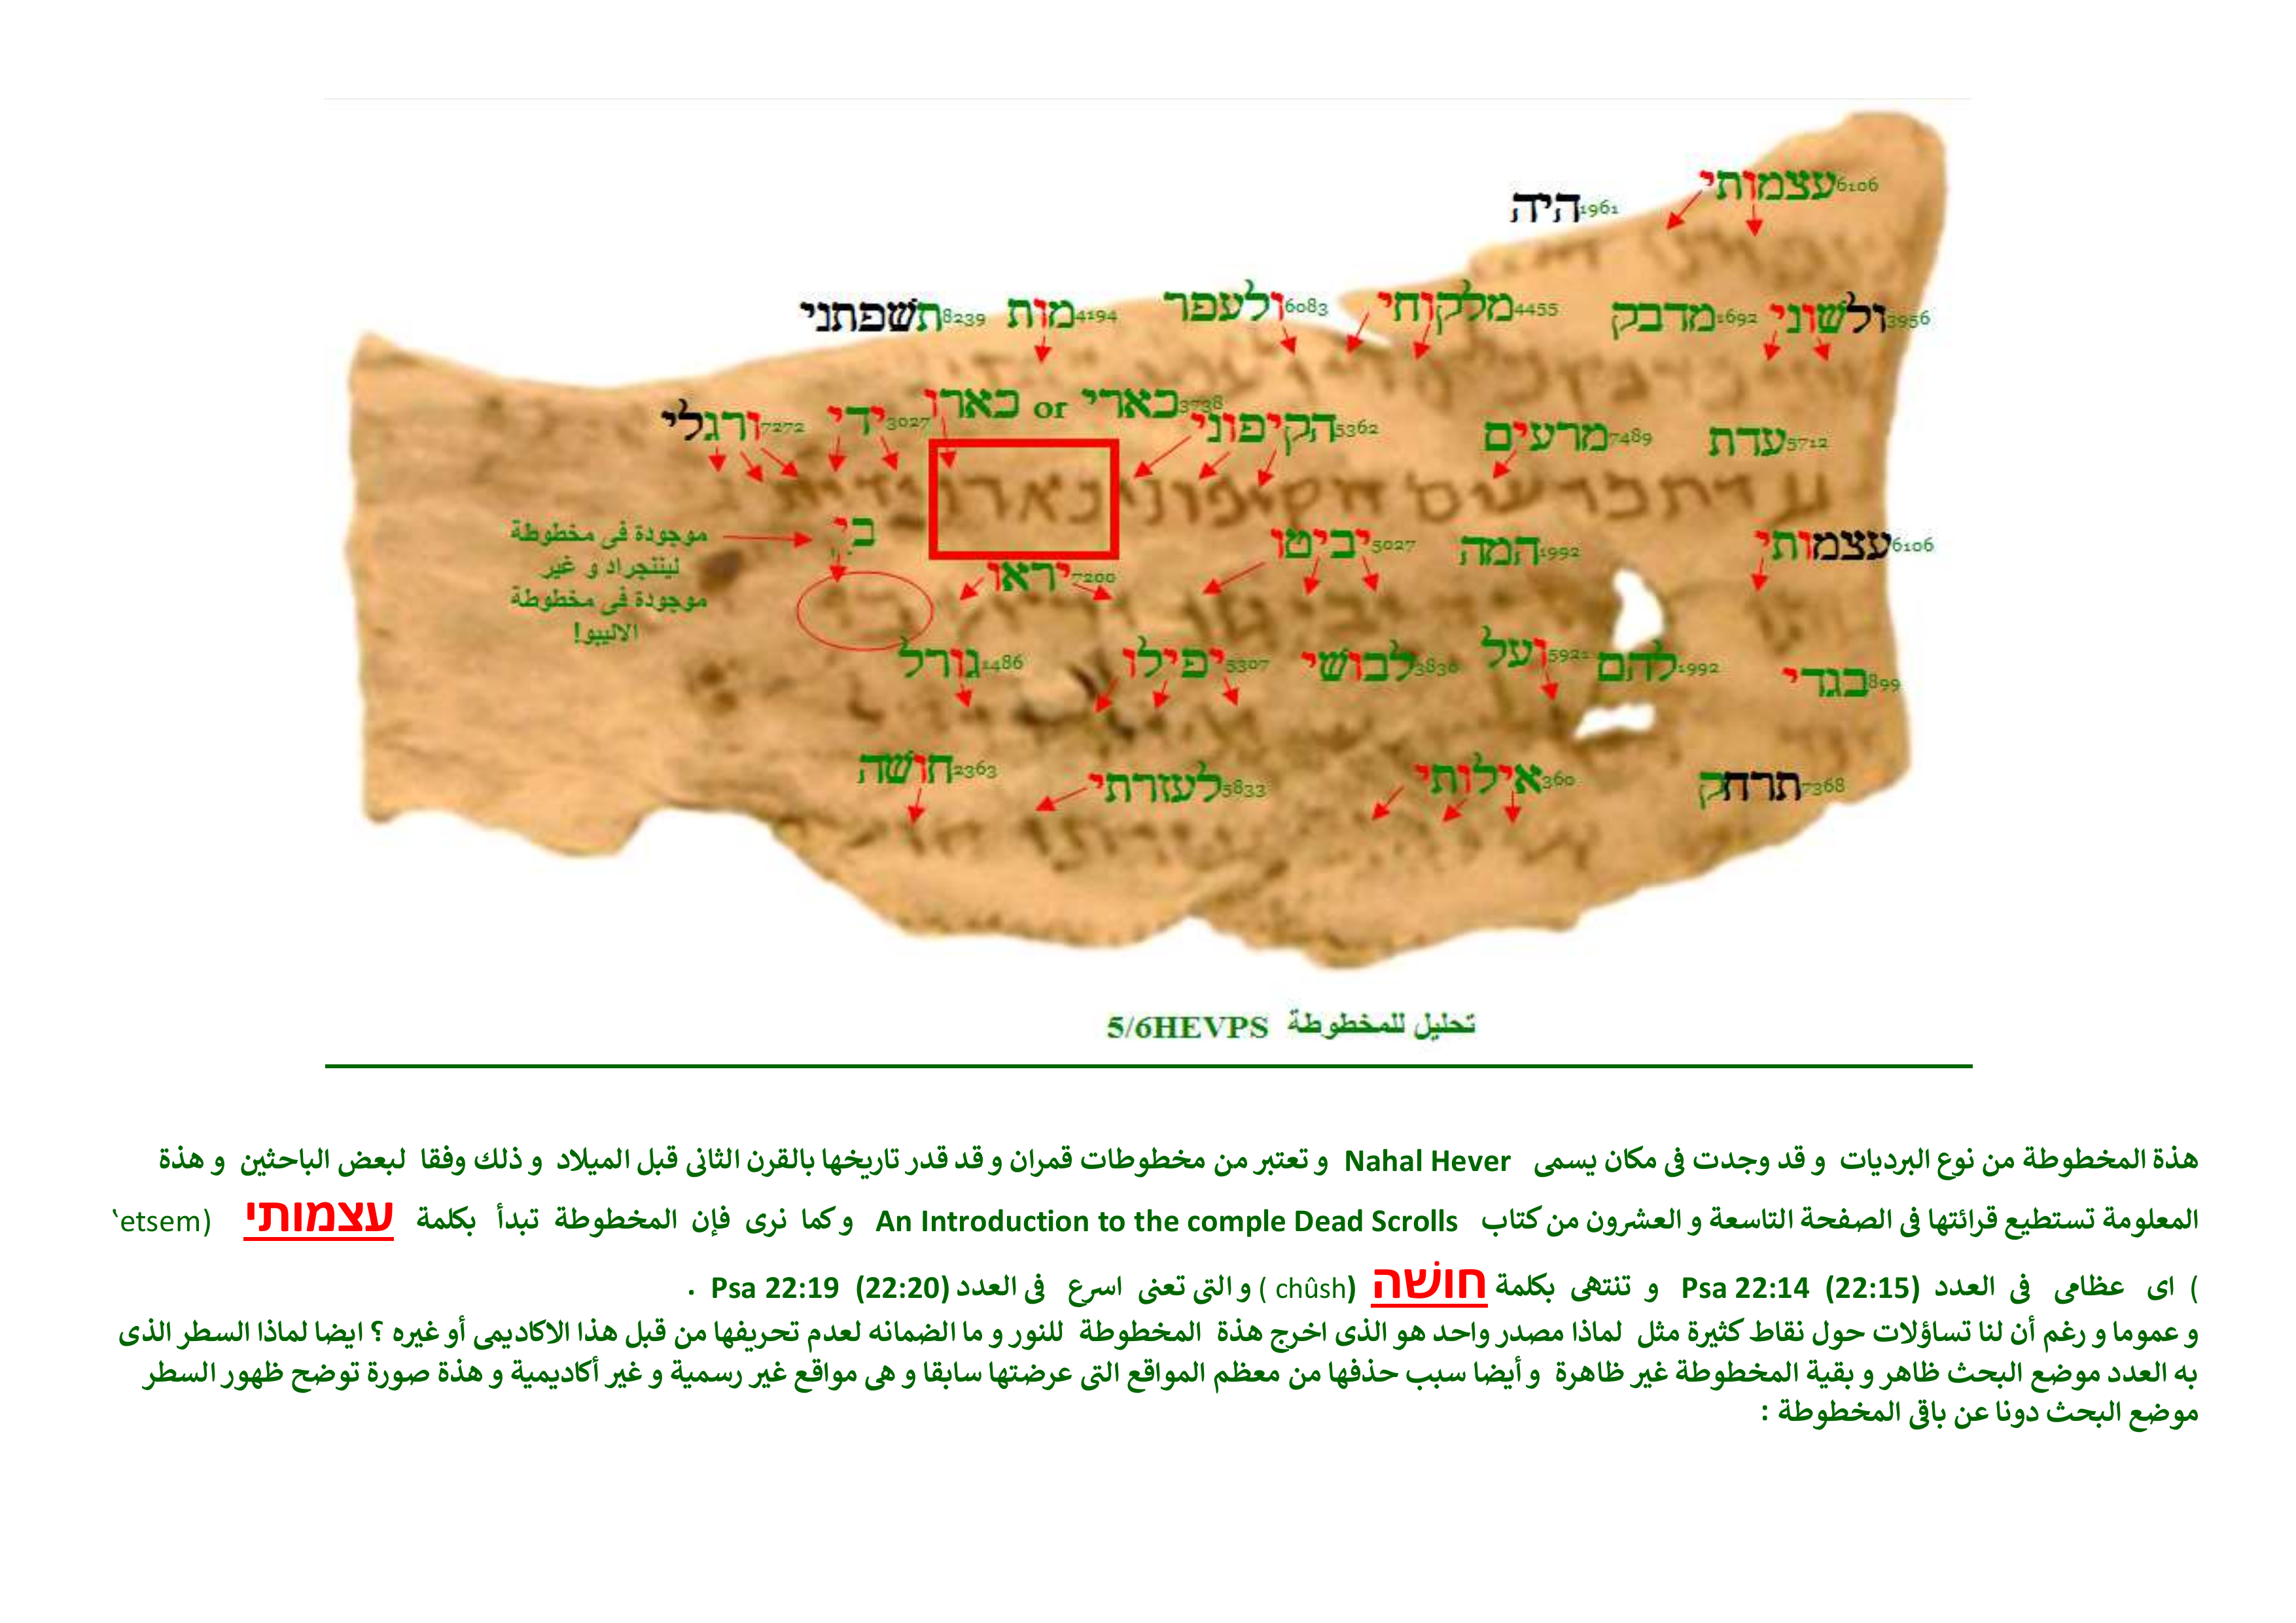 עצמותי6106 היה1961
ולשוני3956 מדבק1692 מלקוחי4455 ולעפר6083 מות4194 תשפתני8239
עדת5712 מרעים7489 הקיפוני5362 כארי3738 or כארו ידי3027 ורגלי7272
עצמותי6106 המה1992 יביטו5027 יראו7200 בי
موجودة فى مخطوطة
لينتجراد و غير
موجودة فى مخطوطة
الاليبو!
בגדי899 להם1992 ועל5921 לבושי3830 יפילו5307 גורל1486
תרחק7368 אילותי360 לעזרתי5833 חושה2363
تحليل للمخطوطة 5/6HEVPS
هذة المخطوطة من نوع البرديات و قد وجدت فى مكان يسمى Nahal Hever و تعتبر من مخطوطات قمران و قد قدر تاريخها بالقرن الثانى قبل الميلاد و ذلك وفقا لبعض الباحثين و هذة
المعلومة تستطيع قرائتها فى الصفحة التاسعة و العشرون من كتاب An Introduction to the comple Dead Scrolls و كما نرى فإن المخطوطة تبدأ بكلمة עצמותי (‛etsem
) اى عظامى فى العدد Psa 22:14 (22:15) و تنتهى بكلمة חושׁה (chûsh ) و التى تعنى اسرع فى العدد Psa 22:19 (22:20) .
و عموما و رغم أن لنا تساؤلات حول نقاط كثيرة مثل لماذا مصدر واحد هو الذى اخرج هذة المخطوطة للنور و ما الضمانه لعدم تحريفها من قبل هذا الاكاديمى أو غيره ؟ ايضا لماذا السطر الذى
به العدد موضع البحث ظاهر و بقية المخطوطة غير ظاهرة و أيضا سبب حذفها من معظم المواقع التى عرضتها سابقا و هى مواقع غير رسمية و غير أكاديمية و هذة صورة توضح ظهور السطر
موضع البحث دونا عن باقى المخطوطة :